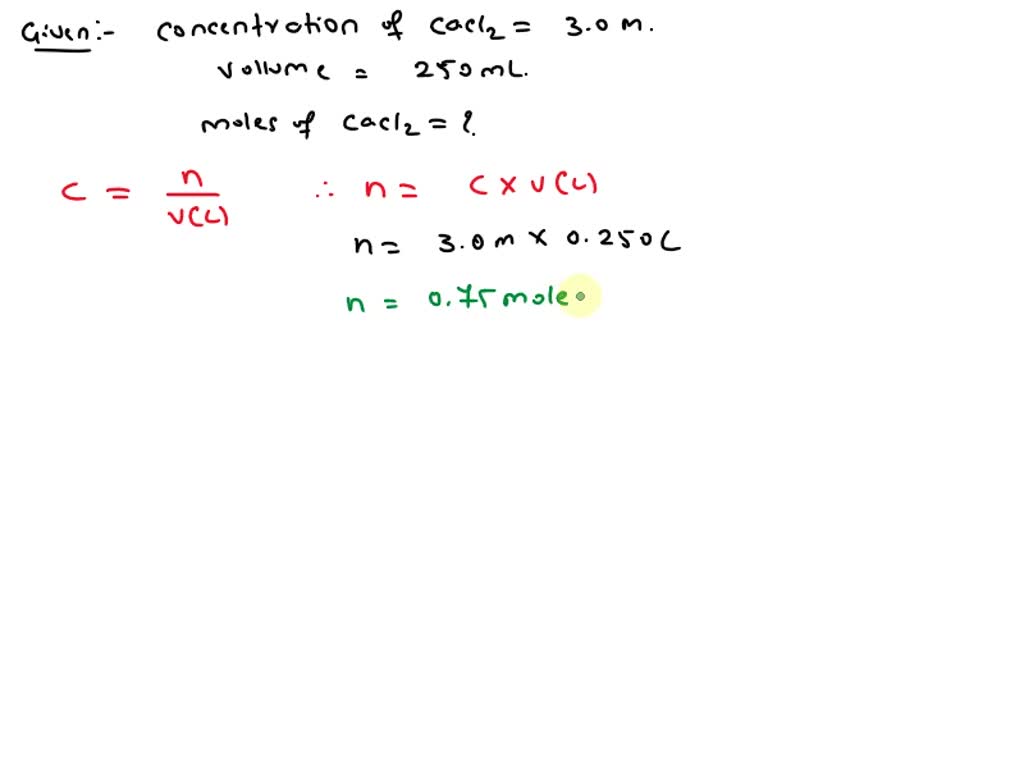 Given:- Concentration of CaCl2 = 3.0 M.
Vollume = 250 mL.
moles of CaCl2 = ?
C = n / V(L) ∴ n = C x V(L)
n = 3.0 M x 0.250 L
n = 0.75 mole